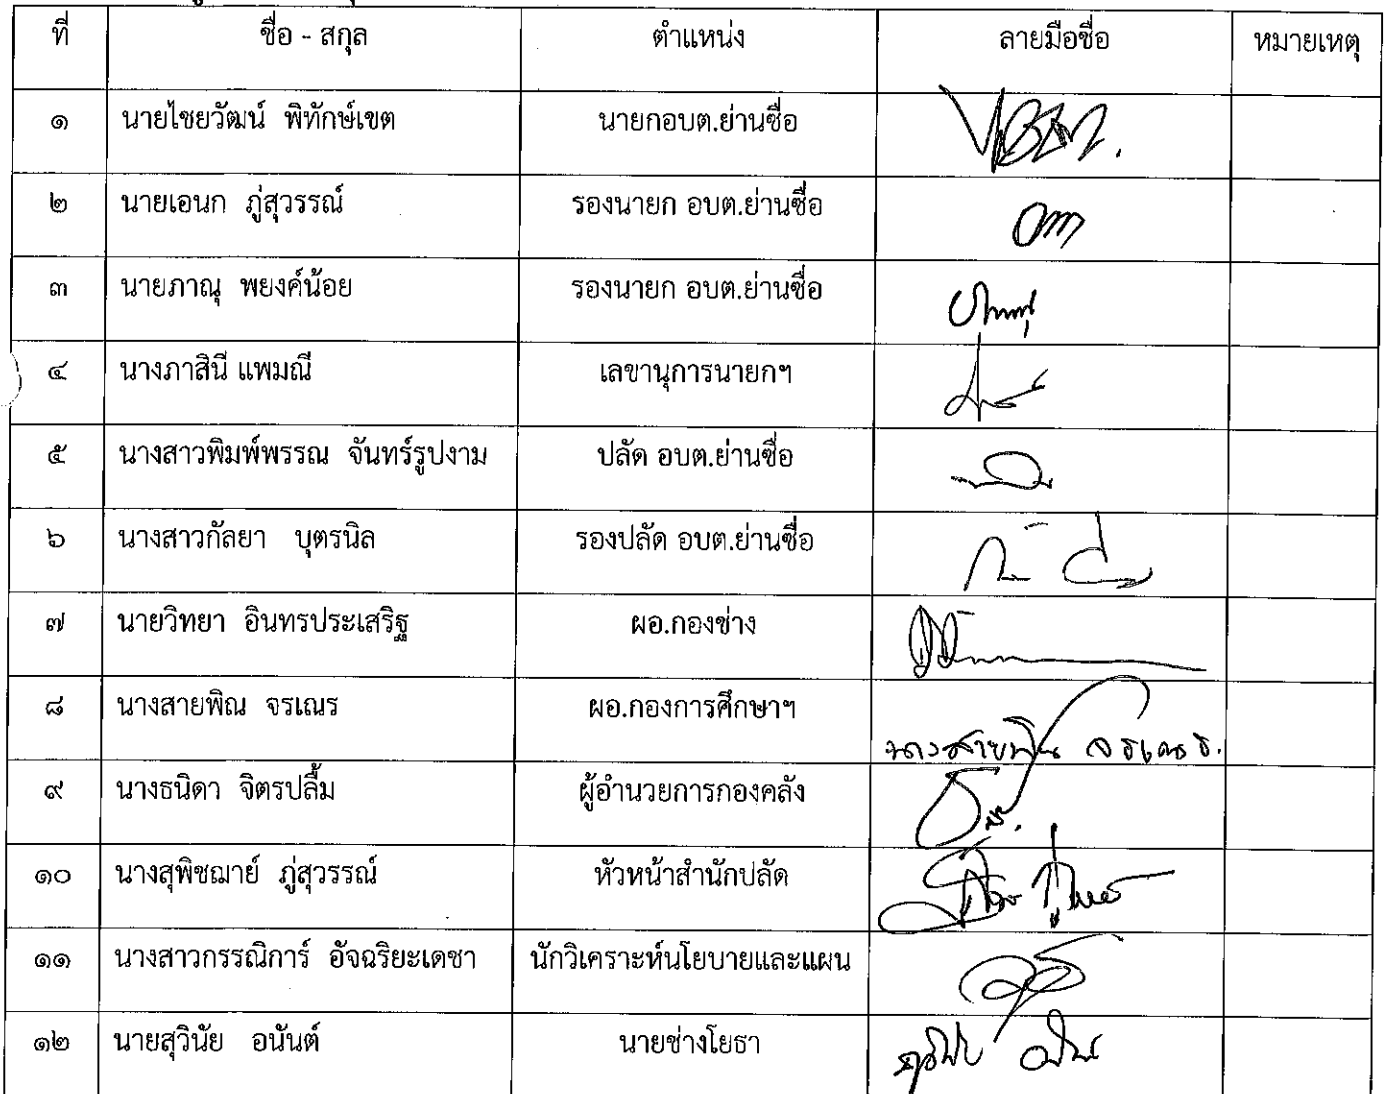 ที่ ชื่อ - สกุล ตำแหน่ง ลายมือชื่อ หมายเหตุ
๑ นายไชยวัฒน์ พิทักษ์เขต นายกอบต.ย่านซื่อ
๒ นายเอนก ภู่สุวรรณ์ รองนายก อบต.ย่านซื่อ
๓ นายภาณุ พยงค์น้อย รองนายก อบต.ย่านซื่อ
๔ นางภาสินี แพมณี เลขานุการนายกฯ
๕ นางสาวพิมพ์พรรณ จันทร์รูปงาม ปลัด อบต.ย่านซื่อ
๖ นางสาวกัลยา บุตรนิล รองปลัด อบต.ย่านซื่อ
๗ นายวิทยา อินทรประเสริฐ ผอ.กองช่าง
๘ นางสายพิณ จรเณร ผอ.กองการศึกษาฯ นางสายพิณ จรเณร.
๙ นางธนิดา จิตรปลื้ม ผู้อำนวยการกองคลัง
๑๐ นางสุพิชฌาย์ ภู่สุวรรณ์ หัวหน้าสำนักปลัด
๑๑ นางสาวกรรณิการ์ อัจฉริยะเดชา นักวิเคราะห์นโยบายและแผน
๑๒ นายสุวินัย อนันต์ นายช่างโยธา